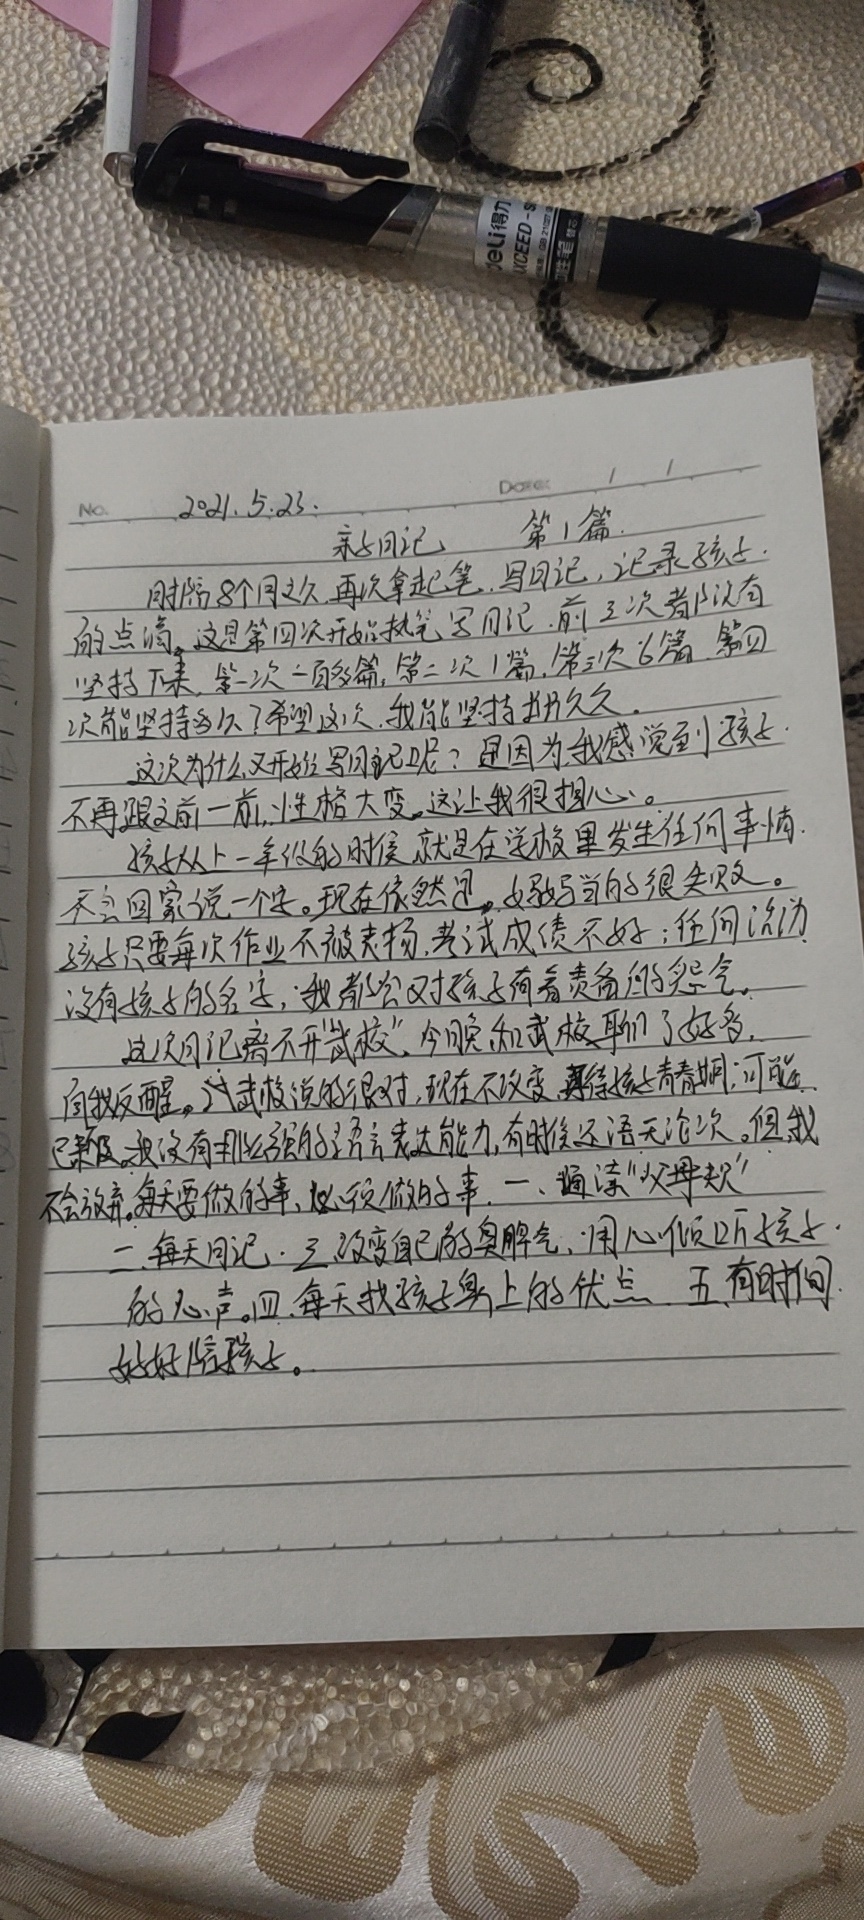 deli得力
XCEED
GB 21027
No.
Date: / /
2021.5.23.
亲子日记 第1篇.
时隔8个月之久,再次拿起笔,写日记,记录孩子.
的点滴。这是第四次开始执笔写日记.前三次都没有
坚持下来,第一次一百多篇,第二次1篇,第三次6篇,第四
次能坚持多久?希望这次,我能坚持久久.
这次为什么又开始写日记呢?是因为,我感觉到孩子.
不再跟之前一前,性格大变。这让我很担心。
孩子从上一年级的时候,就是在学校里发生任何事情.
不会回家说一个字。现在依然是。妈妈当的很失败。
孩子只要每次作业不被表扬,考试成绩不好;任何活动
没有孩子的名字,我都会对孩子有着责备的怨气。
这次日记离不开"武校",今晚和武校聊了好多,
自我反醒。武校说的很对,现在不改变,等待孩子青春期,可能
已。我没有那么强的语言表达能力,有时候还语无论次。但我
不会放弃。每天要做的事,必须做的事.一、通读"父母规"
二、每天日记.三、改变自己的臭脾气,用心倾听孩子.
的心声。四、每天找孩子身上的优点 五、有时间
好好陪孩子。